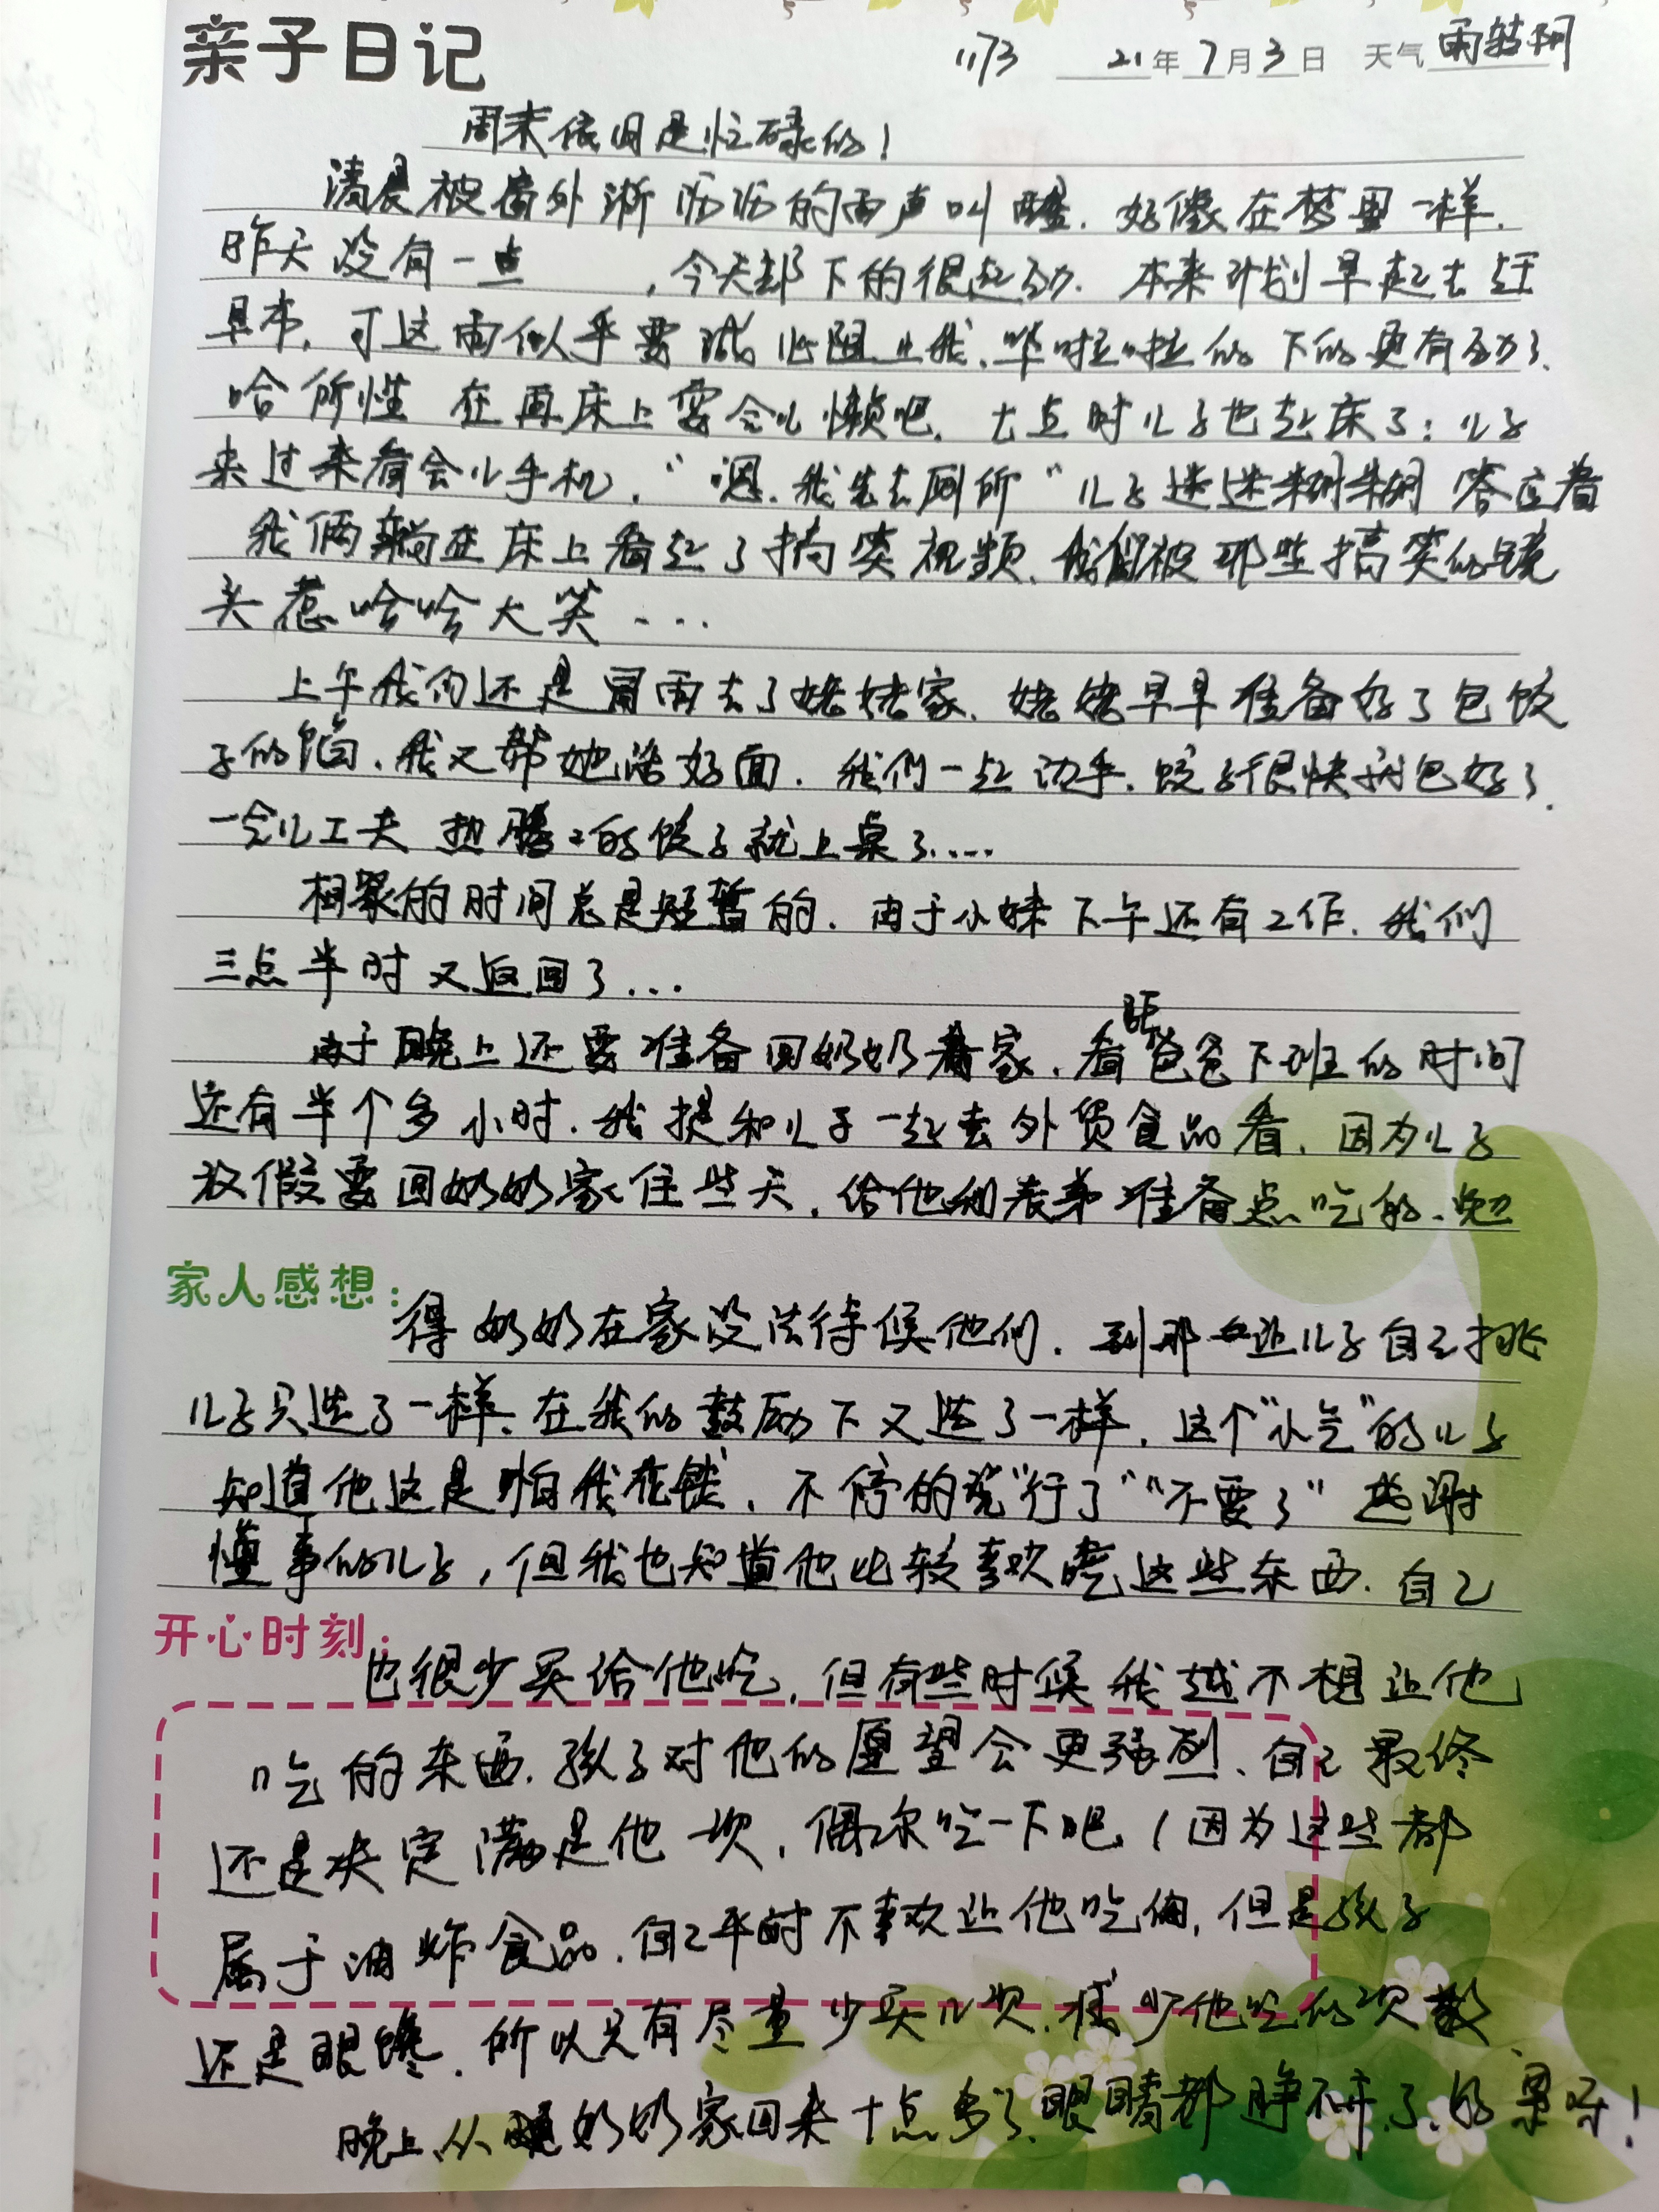 亲子日记
1173 21年7月3日 天气 雨转阴
周末依旧是忙碌的！
清晨被窗外淅沥沥的雨声叫醒.好像在梦里一样.
昨天没有一点 ，今天却下的很起劲.本来计划早起去赶
早市,可这雨似乎要诚心阻止我、哗啦啦的下的更有劲了.
哈所性 在再床上耍会儿懒吧.七点时儿子也起床了：儿子
来过来看会儿手机，“嗯.我先去厕所”儿子迷迷糊糊答应着
我俩躺在床上看起了搞笑视频、我们被那些搞笑的镜
头惹哈哈大笑...
上午我们还是冒雨去了姥姥家、姥姥早早准备好了包饺
子的馅、我又帮她活好面.我们一起动手、饺子很快就包好了.
一会儿工夫 热腾腾的饺子就上桌了....
相聚的时间总是短暂的.由于小妹下午还有工作.我们
三点半时又返回了...
由于晚上还要准备回奶奶家.看距爸爸下班的时间
还有半个多小时.我提和儿子一起去外贸食品看.因为儿子
放假要回奶奶家住些天.给他和表弟准备点吃的、免
家人感想：
得奶奶在家没法待候他们.到那边让儿子自己挑
儿子只选了一样、在我的鼓励下又选了一样.这个“小气”的儿子
知道他这是怕我花钱.不停的说“行了”“不要了”感谢
懂事的儿子,但我也知道他比较喜欢吃这些东西.自己
开心时刻：
也很少买给他吃,但有些时候我越不想让他
吃的东西.孩子对他的愿望会更强烈、自己最终
还是决定满足他一次，偶尔吃一下吧（因为这些都
属于油炸食品.自己平时不喜欢让他吃的,但是孩子
还是眼馋.所以只有尽量少买几次.减少他吃的次数.
晚上从奶奶家回来十点多了、眼睛都睁不开了、好累呀！